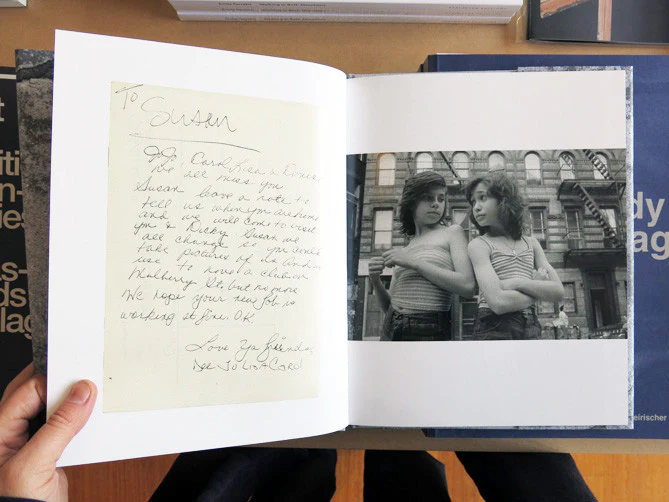 To
Susan
Carol Lisa & Denise
We all miss you
Susan leave a note to
tell us when you are home
and we will come to visit
you & Dicky Susan we
all change so you could
take pictures of us and we
use to have a club on
Mulberry St. but no more
We hope your new job is
working out fine. OK
Love Ya friends
Dee JoJo Lisa Carol
iti
n-
ies
s-
ds
lag
dy
lag
eirischer